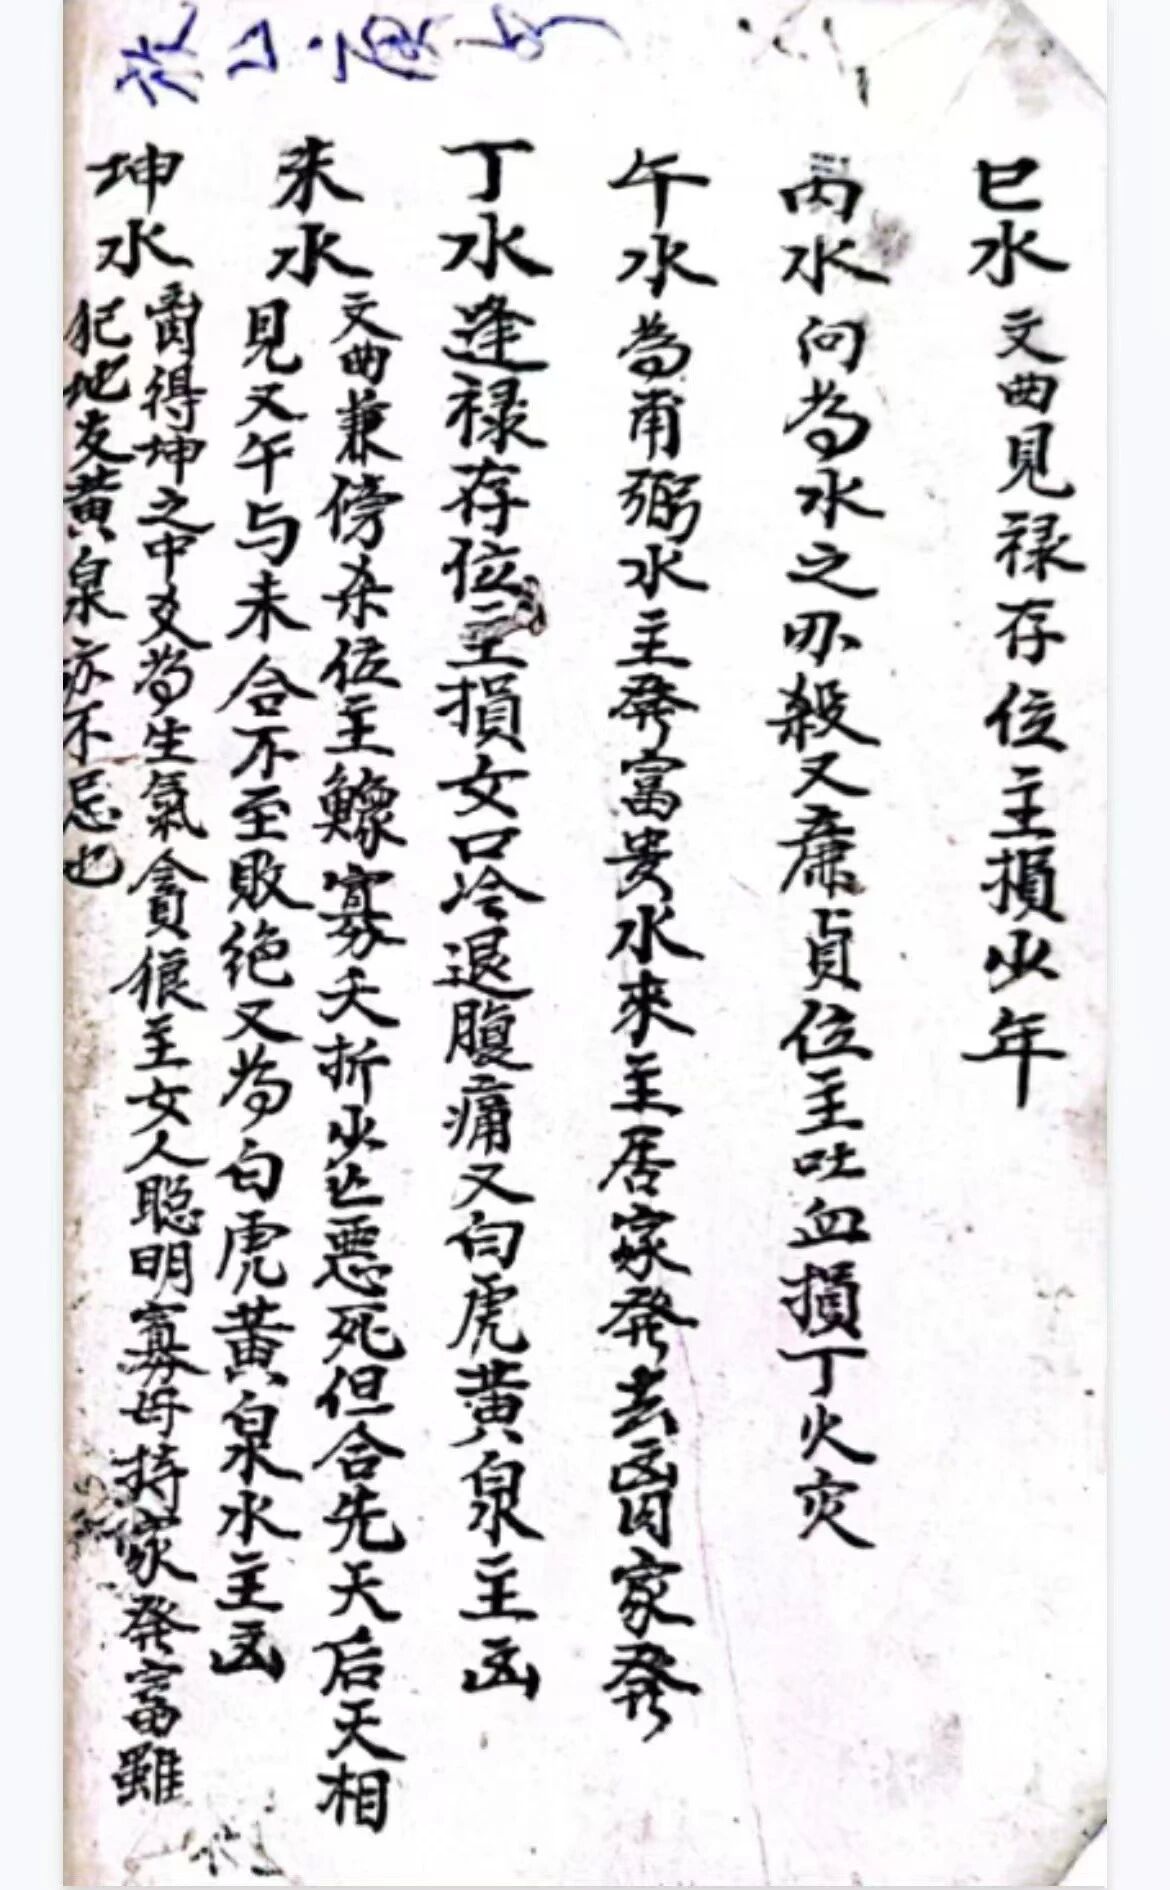 巳水文曲見禄存位主損少年
丙水向為水之刃殺又廉貞位主吐血損丁火灾
午水為甫弼水主発富贵水來主居家発去凶肉家発
丁水逢禄存位主損女口冷退腹痛又白虎黄泉主凶
未水文曲兼傍杀位主鰥寡夭折少亡惡死但合先天后天相
見又午与未合不至敗绝又為白虎黄泉水主凶
坤水得坤之中爻為生氣貪狼主女人聪明寡母持家発富雖
犯地支黄泉亦不忌也